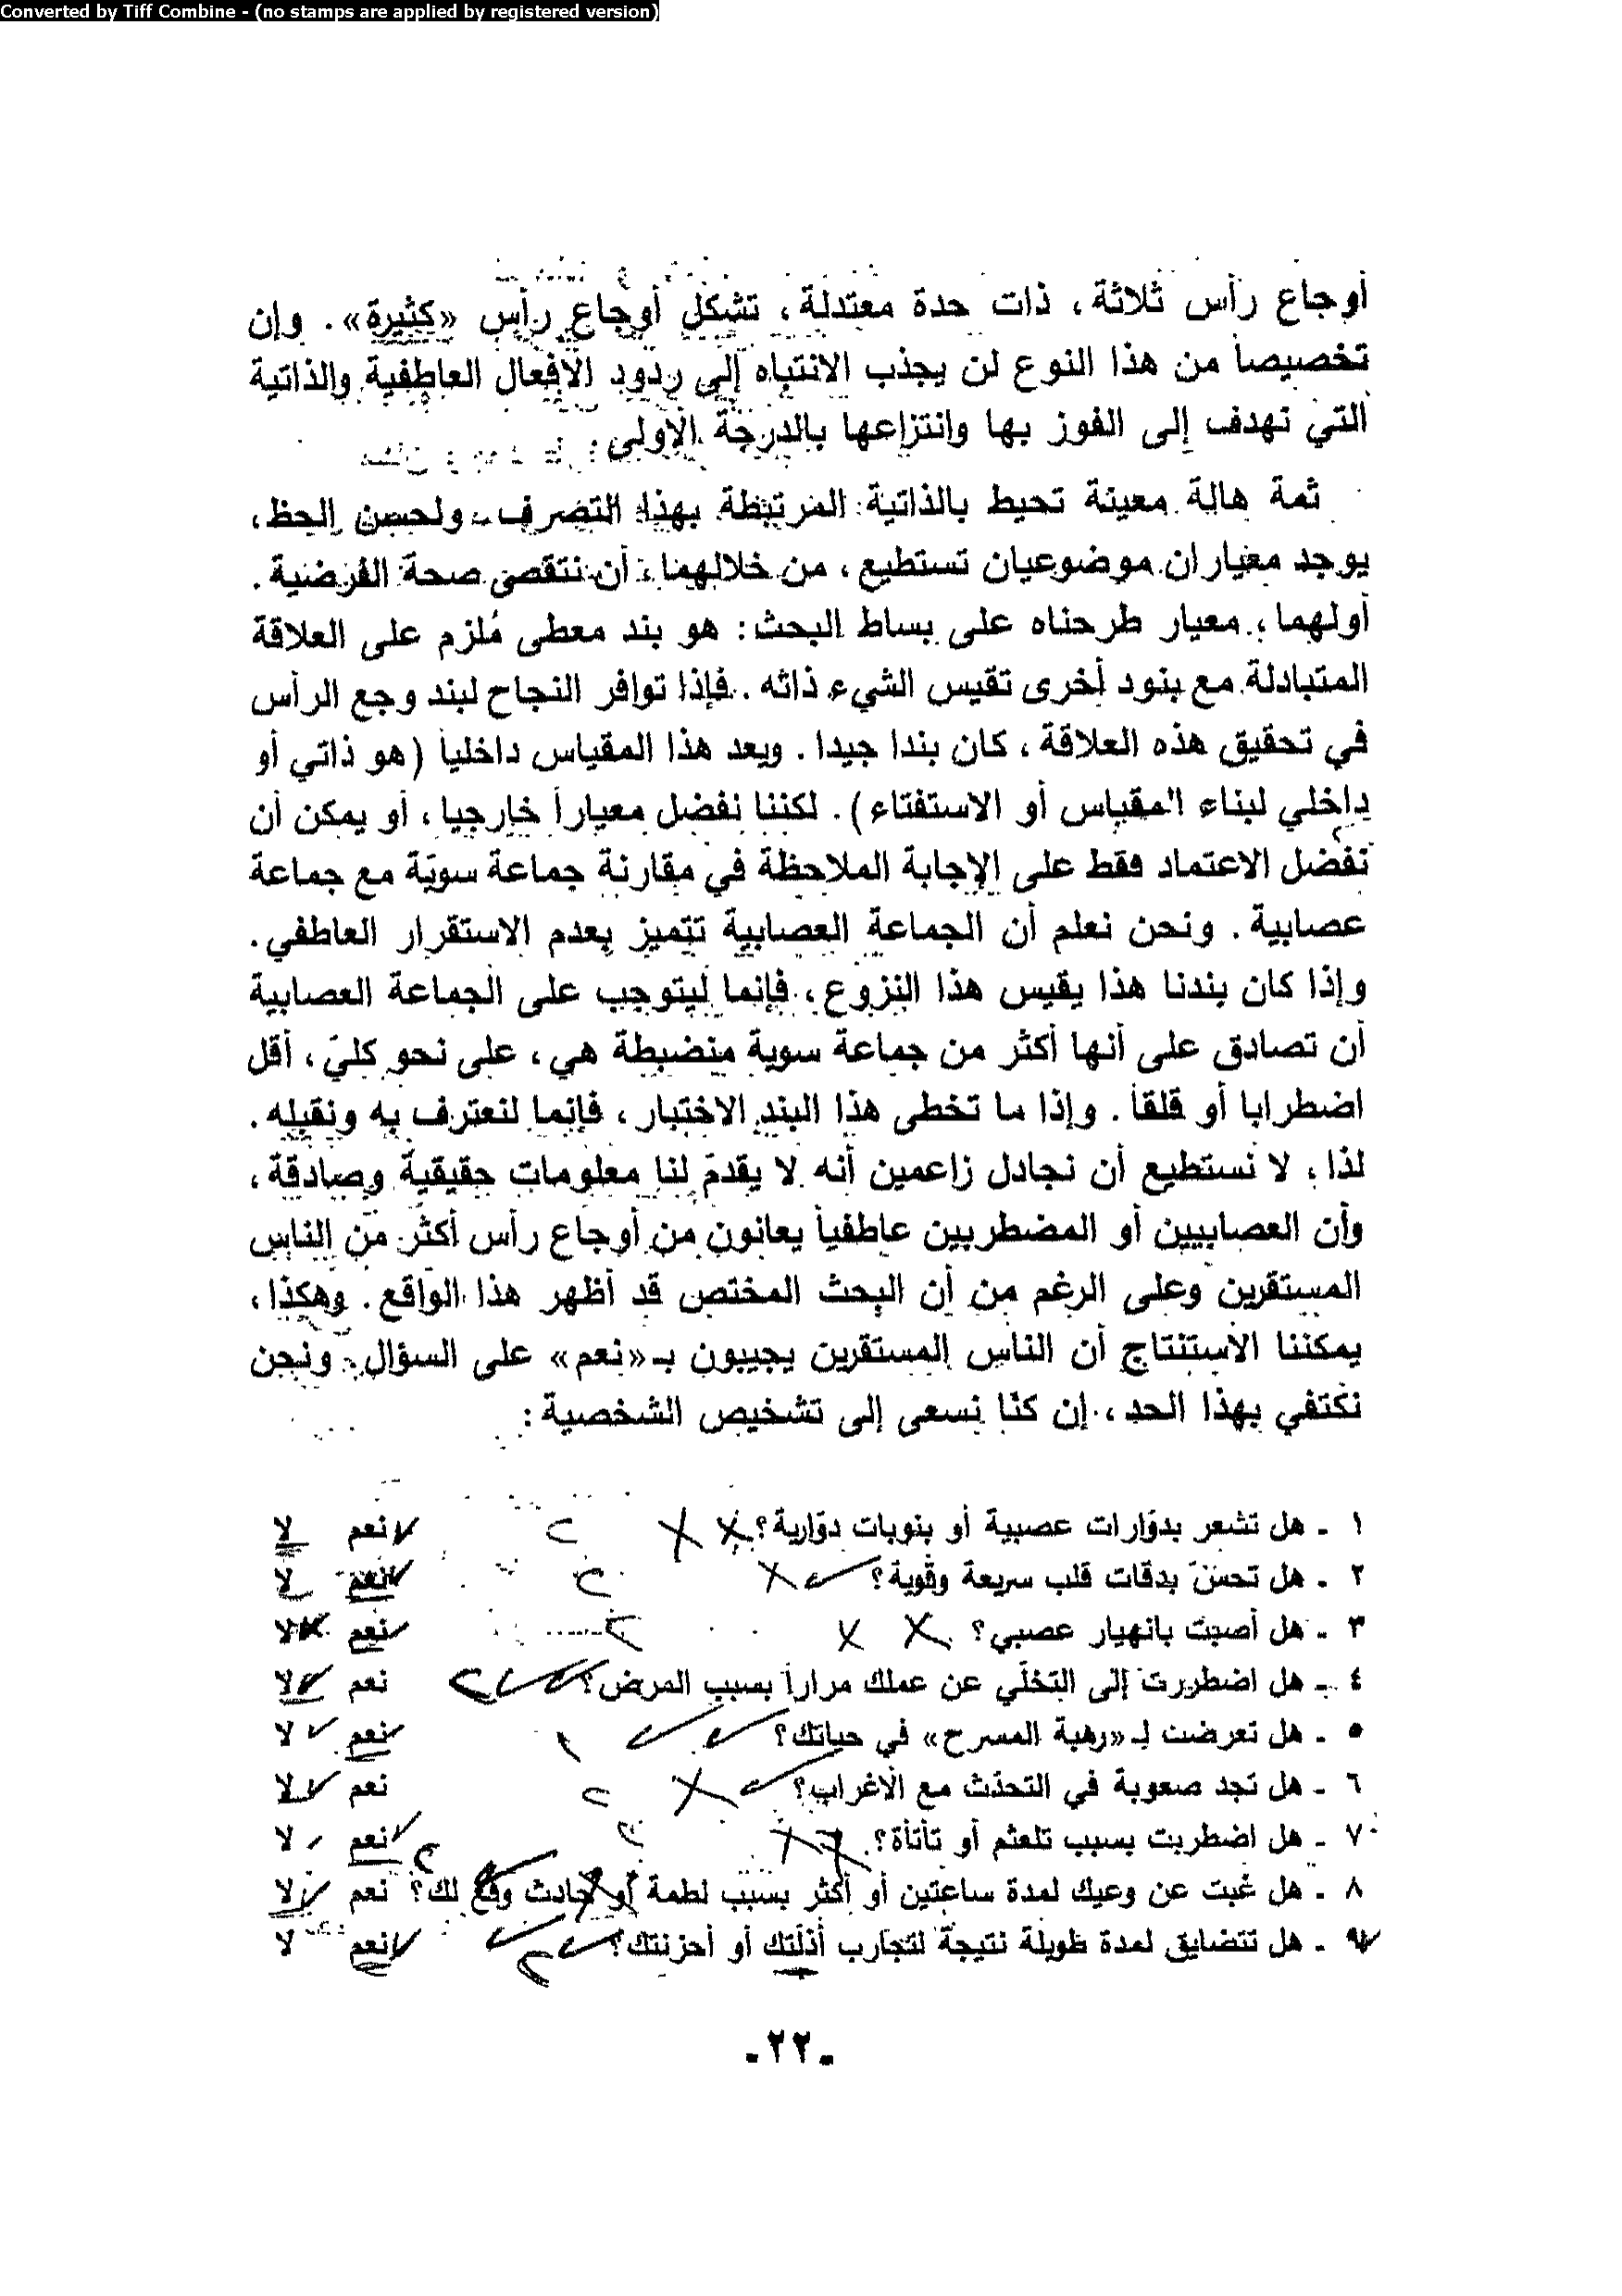 Converted by Tiff Combine - (no stamps are applied by registered version)
أوجاع رأس ثلاثة، ذات حدة معتدلة، تشكل أوجاع رأس «كثيرة». وإن
تخصيصاً من هذا النوع لن يجذب الانتباه إلى ردود الأفعال العاطفية والذاتية
التي تهدف إلى الفوز بها وانتزاعها بالدرجة الأولى.
ثمة هالة معينة تحيط بالذاتية المرتبطة بهذا التصرف. ولحسن الحظ،
يوجد معياران موضوعيان تستطيع، من خلالهما، أن نتقصى صحة الفرضية.
أولهما، معيار طرحناه على بساط البحث: هو بند معطى مُلزم على العلاقة
المتبادلة مع بنود أخرى تقيس الشيء ذاته. فإذا توافر النجاح لبند وجع الرأس
في تحقيق هذه العلاقة، كان بندا جيدا. ويعد هذا المقياس داخلياً (هو ذاتي أو
داخلي لبناء المقياس أو الاستفتاء). لكننا نفضل معياراً خارجيا، أو يمكن أن
نفضل الاعتماد فقط على الإجابة الملاحظة في مقارنة جماعة سويّة مع جماعة
عصابية. ونحن نعلم أن الجماعة العصابية تتميز بعدم الاستقرار العاطفي.
وإذا كان بندنا هذا يقيس هذا النزوع، فإنما ليتوجب على الجماعة العصابية
أن تصادق على أنها أكثر من جماعة سوية منضبطة هي، على نحو كليّ، أقل
اضطرابا أو قلقاً. وإذا ما تخطى هذا البند الاختبار، فإنما لنعترف به ونقبله.
لذا، لا نستطيع أن نجادل زاعمين أنه لا يقدمّ لنا معلومات حقيقية وصادقة،
وأن العصابيين أو المضطربين عاطفياً يعانون من أوجاع رأس أكثر من الناس
المستقرين وعلى الرغم من أن البحث المختص قد أظهر هذا الواقع. وهكذا،
يمكننا الاستنتاج أن الناس المستقرين يجيبون بـ«نعم» على السؤال. ونحن
نكتفي بهذا الحد، إن كنّا نسعى إلى تشخيص الشخصية:
١ - هل تشعر بدوّارات عصبية أو بنوبات دوّارية؟ نعم لا
٢ - هل تحسّ بدقات قلب سريعة وقوية؟ نعم لا
٣ - هل أصبت بانهيار عصبي؟ نعم لا
٤ - هل اضطررت إلى التخلّي عن عملك مراراً بسبب المرض؟ نعم لا
٥ - هل تعرضت لـ«رهبة المسرح» في حياتك؟ نعم لا
٦ - هل تجد صعوبة في التحدّث مع الأغراب؟ نعم لا
٧ - هل اضطربت بسبب تلعثم أو تأتأة؟ نعم لا
٨ - هل غبت عن وعيك لمدة ساعتين أو أكثر بسبب لطمة أو حادث وقع لك؟ نعم لا
٩ - هل تتضايق لمدة طويلة نتيجة لتجارب أذلّتك أو أحزنتك؟ نعم لا
-٢٢-